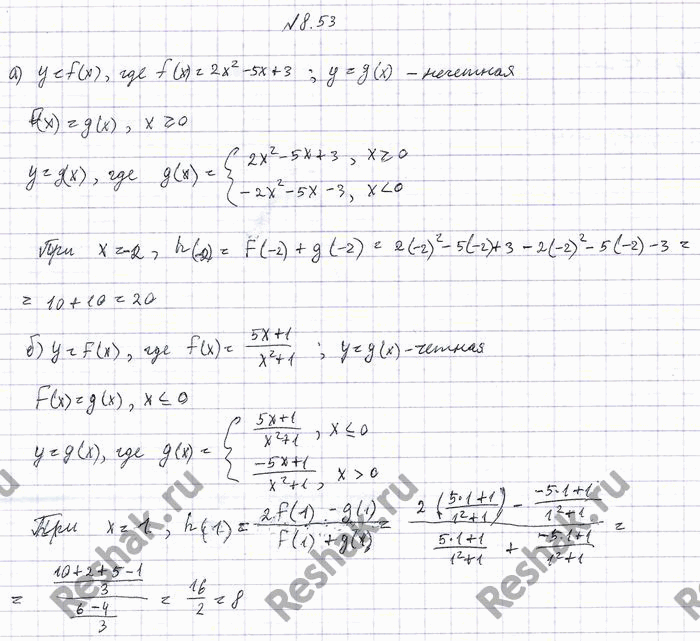 №8.53
а) y = f(x), где f(x) = 2x² - 5x + 3 ; y = g(x) - нечетная
f(x) = g(x) , x ≥ 0
y = g(x) , где g(x) = { 2x² - 5x + 3 , x ≥ 0
-2x² - 5x - 3 , x < 0
При x = -2 , h(-2) = F(-2) + g(-2) = 2(-2)² - 5(-2) + 3 - 2(-2)² - 5(-2) - 3 =
= 10 + 10 = 20
б) y = F(x) , где f(x) = (5x+1)/(x²+1) ; y = g(x) - четная
F(x) = g(x) , x ≤ 0
y = g(x), где g(x) = { (5x+1)/(x²+1) , x ≤ 0
(-5x+1)/(x²+1) , x > 0
При x = 1 , h(1) = (2f(1) - g(1))/(f(1) + g(1)) = (2((5·1+1)/(1²+1)) - (-5·1+1)/(1²+1))/((5·1+1)/(1²+1) + (-5·1+1)/(1²+1)) =
= ((10+2+5-1)/3)/((6-4)/3) = 16/2 = 8
Reshak.ru
Reshak.ru
Reshak.ru